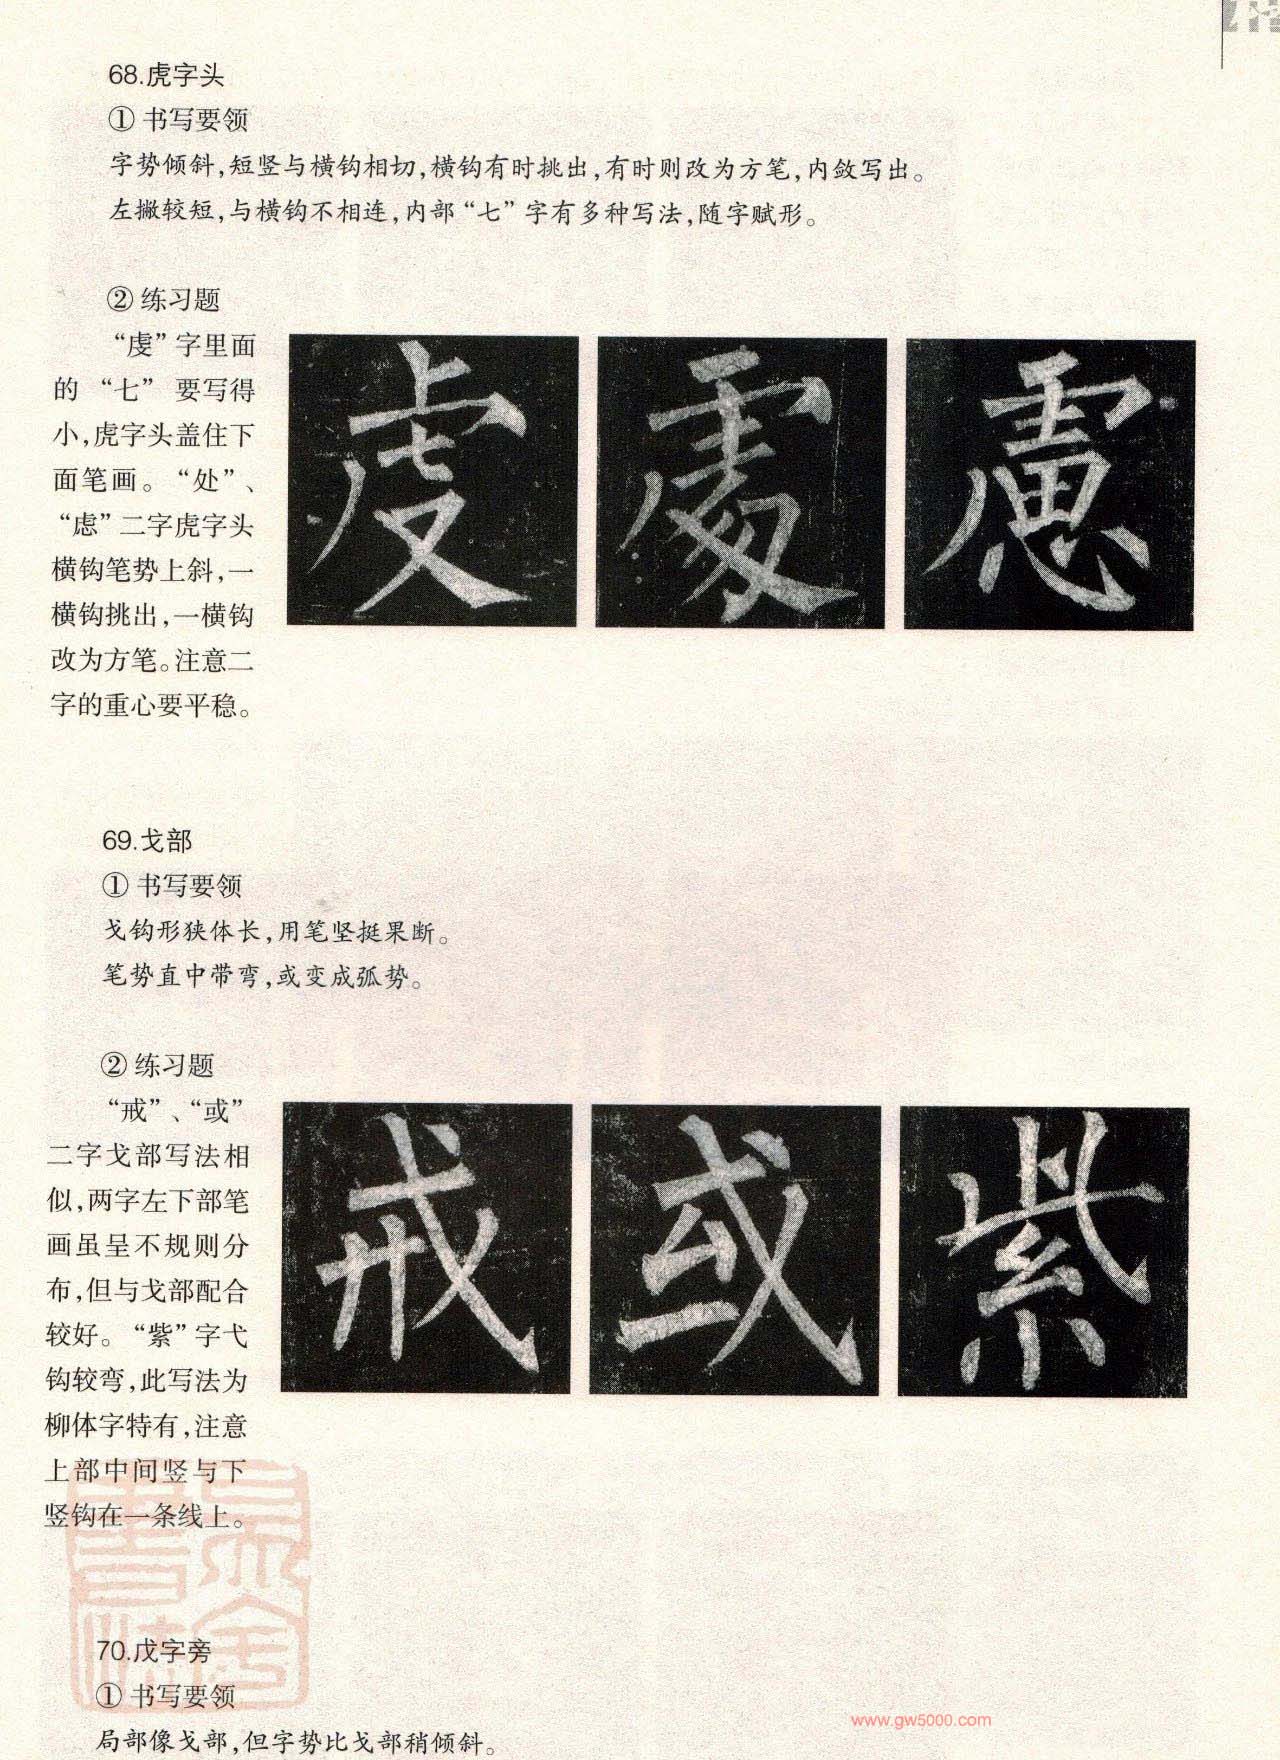 68.虎字头
① 书写要领
字势倾斜,短竖与横钩相切,横钩有时挑出,有时则改为方笔,内敛写出。
左撇较短,与横钩不相连,内部“七”字有多种写法,随字赋形。
② 练习题
“虔”字里面
的 “七” 要写得
小,虎字头盖住下
面笔画。“处”、
“虑”二字虎字头
横钩笔势上斜,一
横钩挑出,一横钩
改为方笔。注意二
字的重心要平稳。
虔 處 慮
69.戈部
① 书写要领
戈钩形狭体长,用笔坚挺果断。
笔势直中带弯,或变成弧势。
② 练习题
“戒”、“或”
二字戈部写法相
似,两字左下部笔
画虽呈不规则分
布,但与戈部配合
较好。“紫”字弋
钩较弯,此写法为
柳体字特有,注意
上部中间竖与下
竖钩在一条线上。
戒 或 紫
70.戊字旁
① 书写要领
局部像戈部,但字势比戈部稍倾斜。
www.gw5000.com